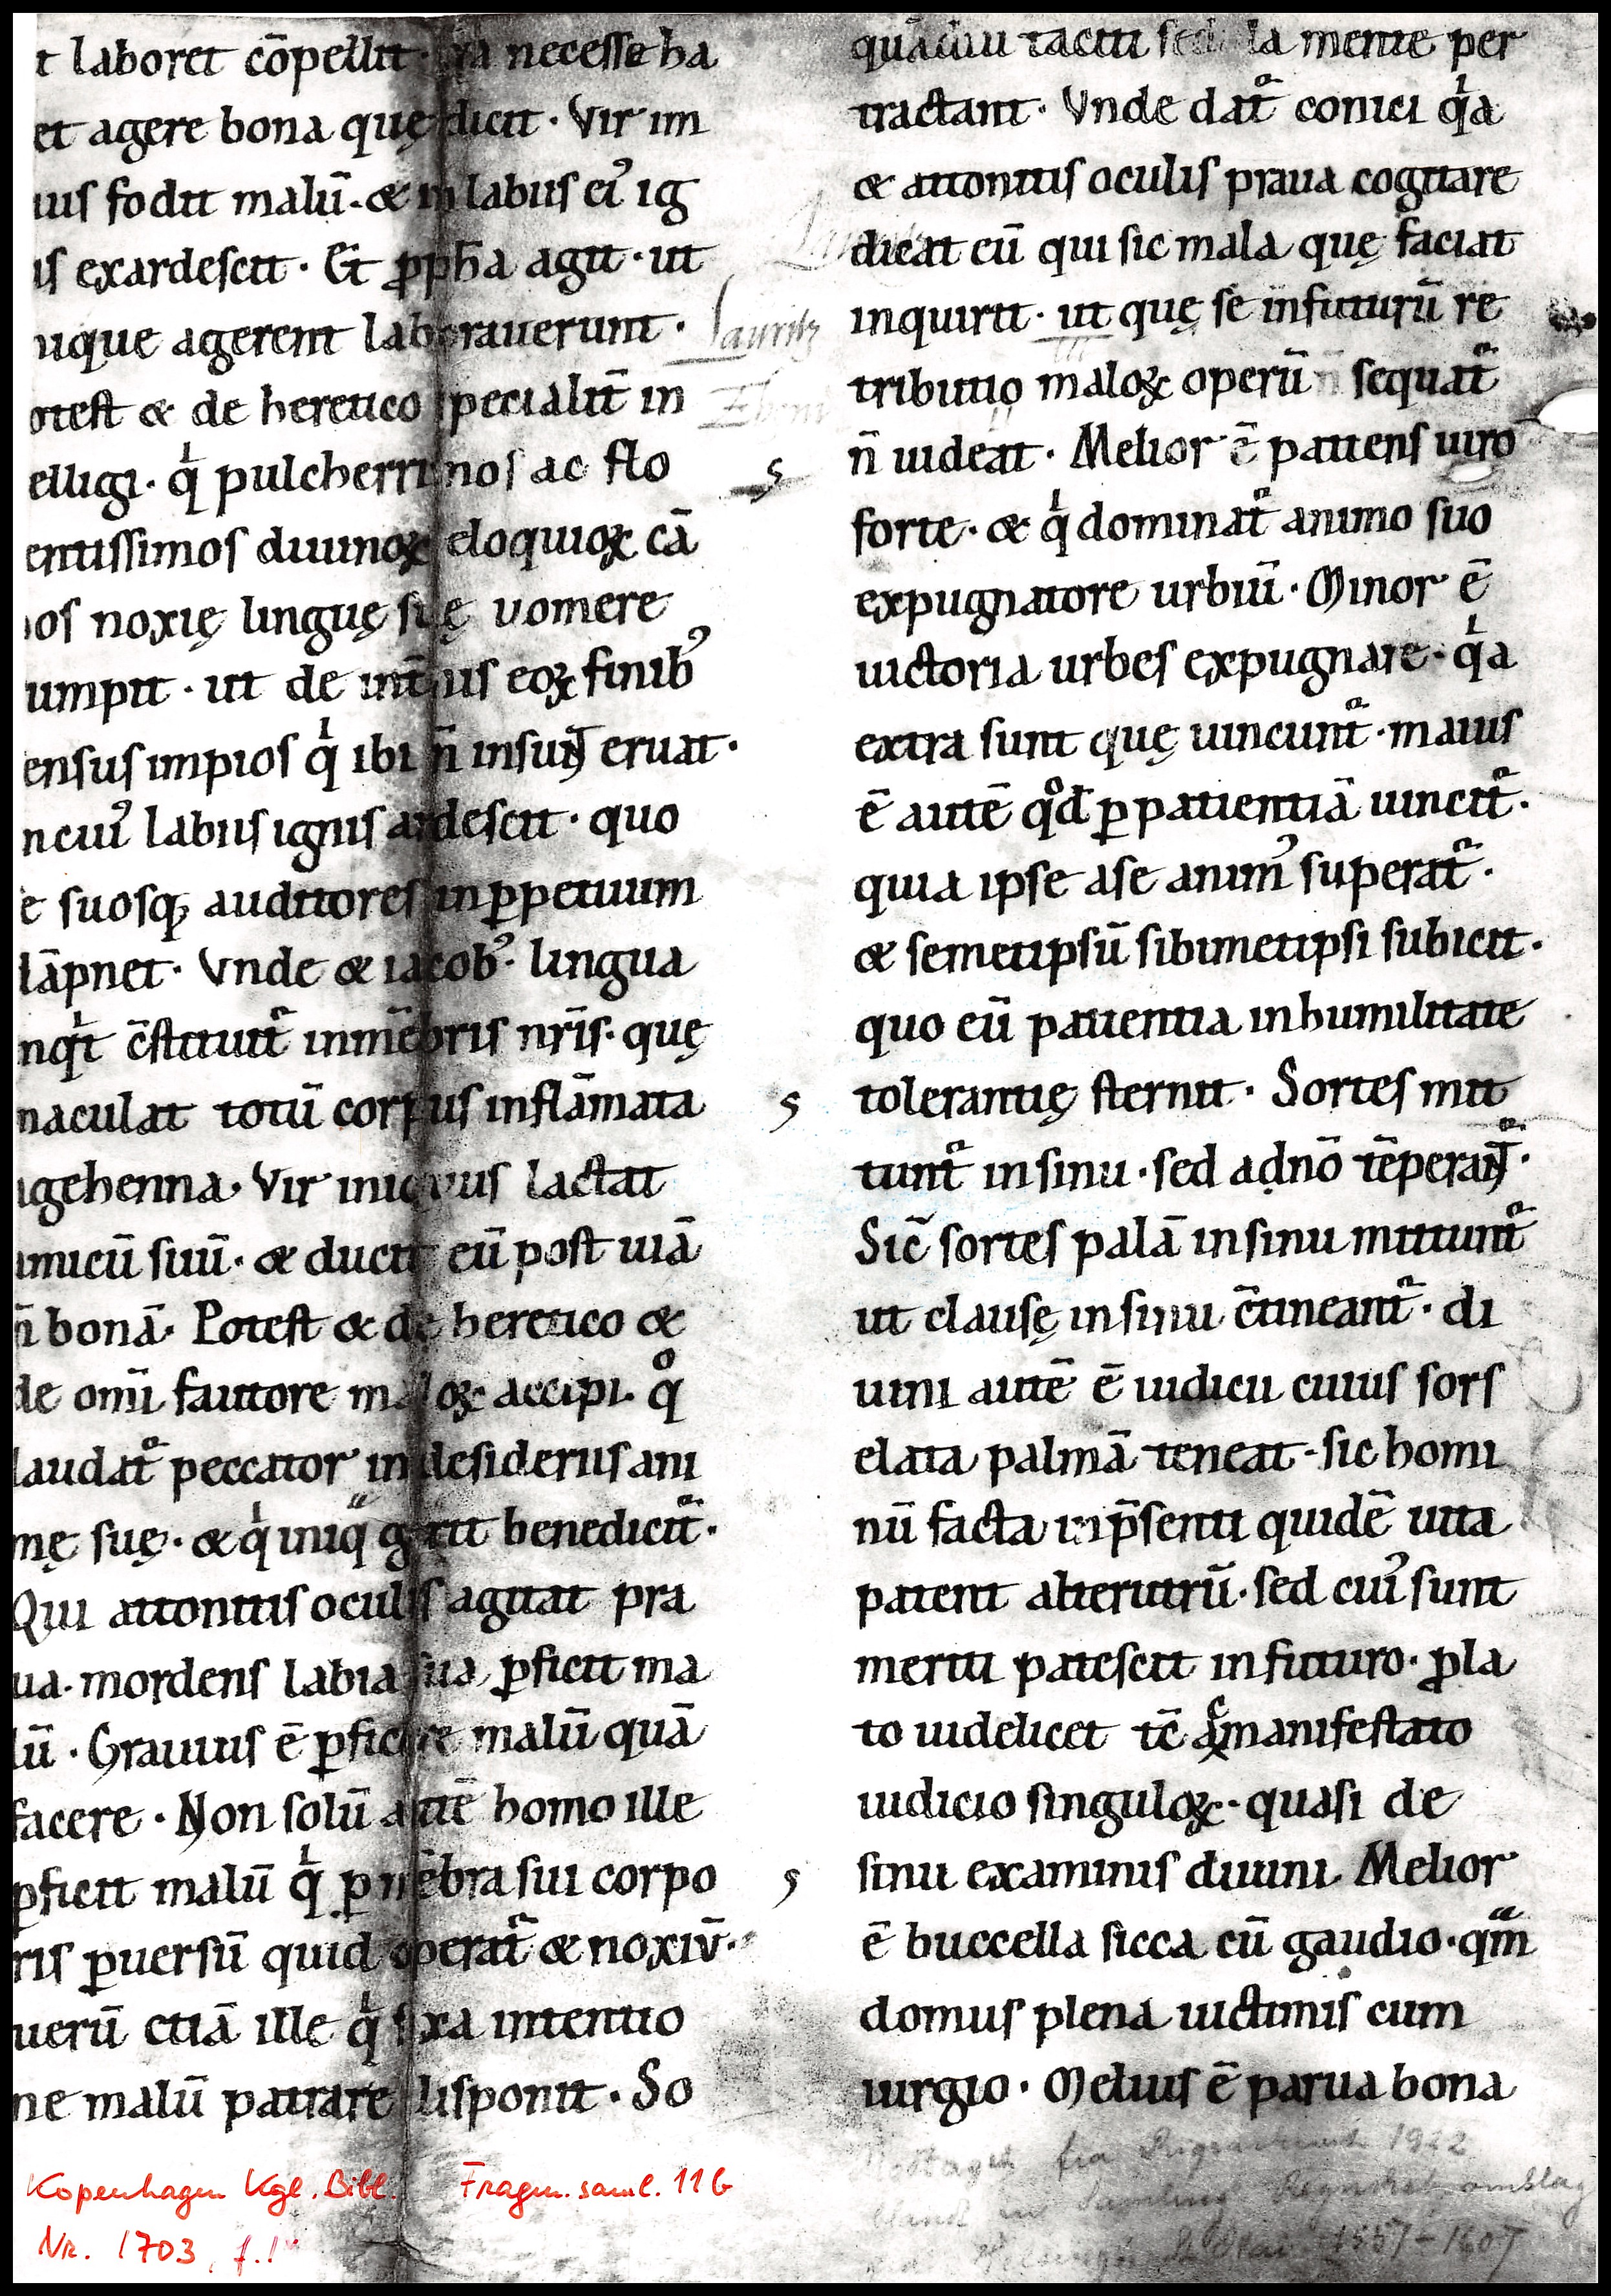 t laboret cōpellit · necesse ha
et agere bona quę dicit · Vir im
ius fodit malū · & in labiis ei᾽ ig
is exardescit · Et ꝓpħa agit · ut
uque agerent laborauerunt ·
otest & de heretico specialit̄ in
elligi · qͥ pulcherrimos ac flo
entissimos diuinoꝝ eloquioꝝ cā
pos noxię linguę suę vomere
umpit · ut de int̄ius eoꝝ finib᾽
ensus impios qͥ ibi n̄ insunt eruat ·
ncui᾽ labiis ignis ardescit · quo
e suosq; auditores inꝑpetuum
lāpnet · Vnde & iacob᾽ · lingua
nqͥt c̄stituit᷑ inmēbris nr̄is · quę
naculat totū corpus inflāmata
agehenna · Vir iniquus lactat
amicū suū · & ducit eū post uiā
n̄ bonā · Potest & de heretico &
de om̄i fautore maloꝝ accipi · qͦ
laudat᷑ peccator in desideriis ani
mę suę · & qͥ iniqͣ gerit benedicit᷑ ·
Qui attonitis oculis agitat pra
ua · mordens labia sua ꝑficit ma
lū · Grauius ē ꝑficere malū quā
facere · Non solū autē homo ille
ꝑficit malū qͥ ꝑ mēbra sui corpo
ris ꝑuersū quid operat᷑ & noxiū ·
uerū etiā ille qͥ fixa intentio
ne malū patrare disponit · So
quādiu taciti la mente per
tractant · Vnde dat᷑ conici qͥa
& attonitis oculis praua cogitare
dicat eū qui sic mala quę faciat
inquirit · ut quę se infuturū re
tributio maloꝝ operū sequat᷑
n̄ uideat · Melior ē patiens uiro
forte · & qͥ dominat᷑ animo suo
expugnatore urbiū · Minor ē
uictoria urbes expugnare · qͥa
extra sunt quę uincunt᷑ · maius
ē autē qͦd ꝑ patientiā uincit᷑ ·
quia ipse ase anim᾽ superat᷑ ·
& semetipsū sibimetipsi subicit ·
quo eū patientia inhumilitate
tolerantię sternit · Sortes mit
tunt᷑ insinu · sed adn̄o tēperant᷑ ·
Sic̄ sortes palā insinu mittunt᷑
ut clausę insinu c̄tineant᷑ · di
uini autē ē iudicii cuius sors
elata palmā teneat · sic homi
nū facta inp̄senti quidē uita
patent alterutrū · sed cui᾽ sunt
meriti patescit infuturo · ꝓla
to uidelicet tc̄ ac manifestato
iudicio singuloꝝ · quasi de
sinu examinis diuini · Melior
ē buccella sicca cū gaudio · qͣm
domus plena uictimis cum
iurgio · Melius ē parua bona
Lauritz
Kopenhagen Kgl. Bibl. Fragm. saml. 116
Nr. 1703, f.1
1922
1557-1607